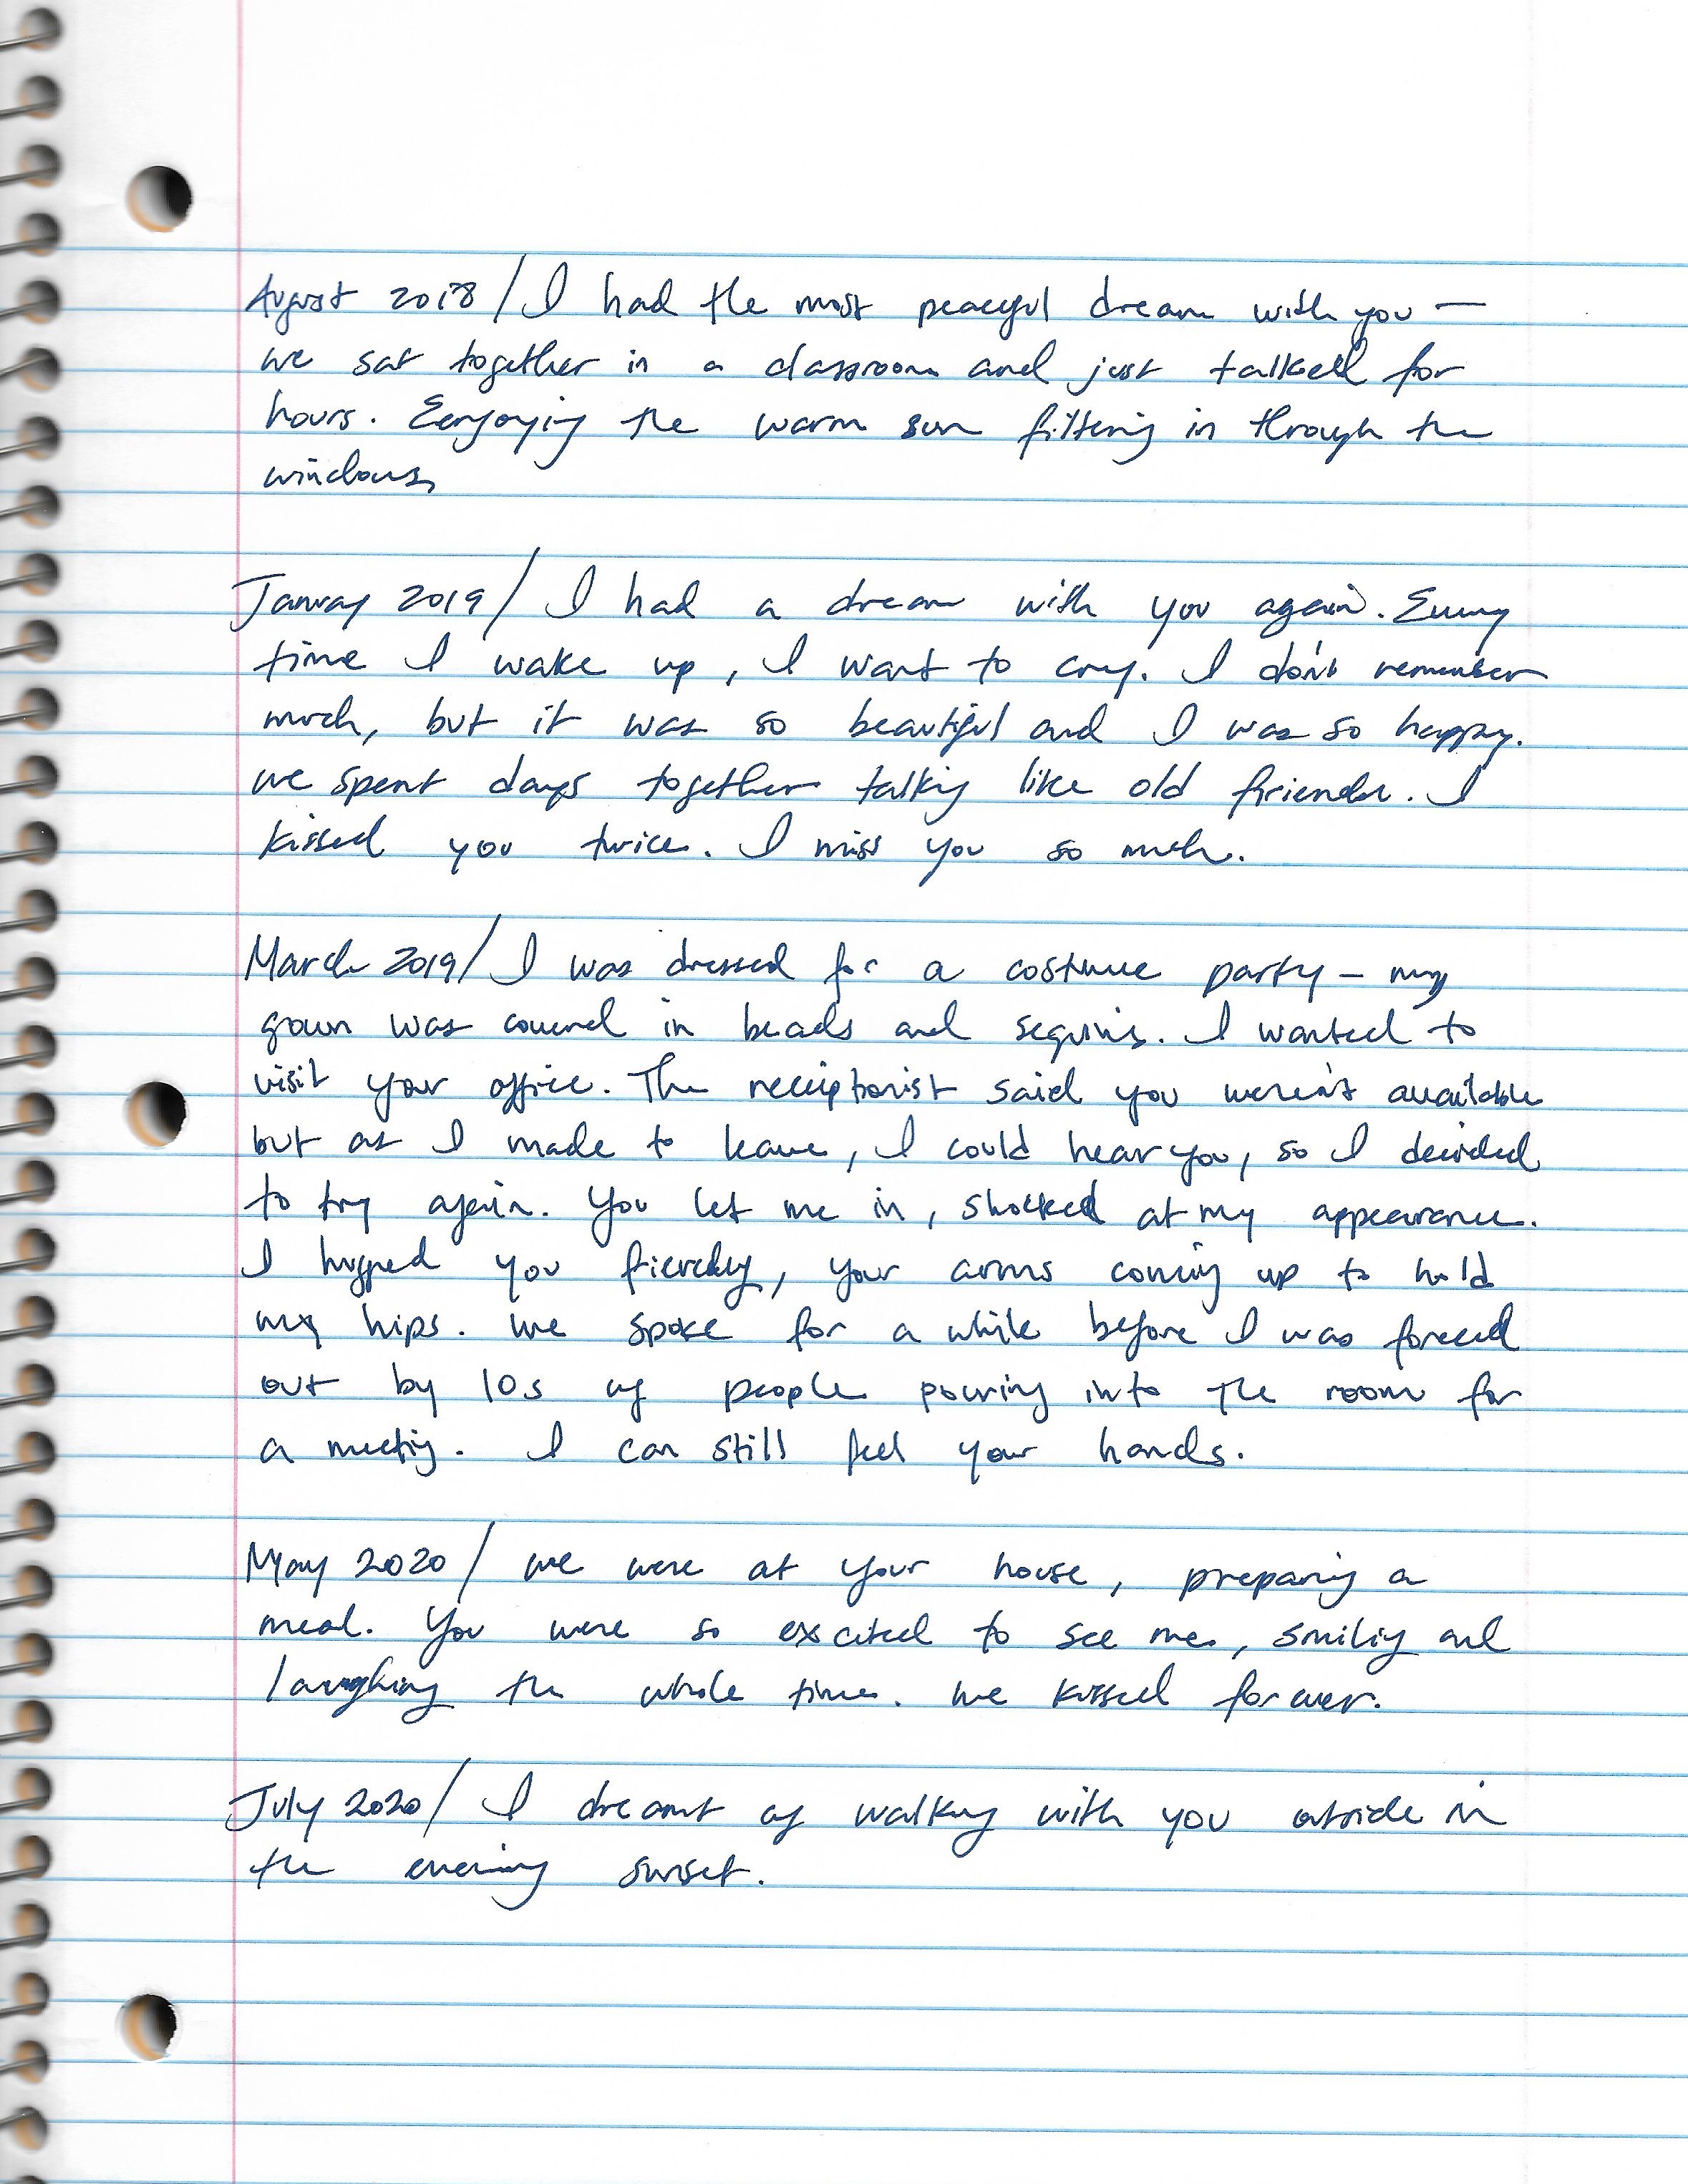 August 2018 / I had the most peaceful dream with you —
we sat together in a classroom and just talked for
hours. Eenjoying the warm sun filtering in through the
windows,
January 2019 / I had a dream with you again. Every
time I wake up, I want to cry. I don't remember
much, but it was so beautiful and I was so happy.
we spent days together talking like old friends. I
kissed you twice. I miss you so much.
March 2019 / I was dressed for a costume party - my
gown was covered in beads and sequins. I wanted to
visit your office. The receiptionist said you weren't available
but as I made to leave, I could hear you, so I decided
to try again. You let me in, shocked at my appearance.
I hugged you fiercely, your arms coming up to hold
my hips. We spoke for a while before I was forced
out by 10s of people pouring into the room for
a meeting. I can still feel your hands.
May 2020 / we were at your house, preparing a
meal. You were so excited to see me, smiling and
laughing the whole time. We kissed forever.
July 2020 / I dreamt of walking with you outside in
the evening sunset.